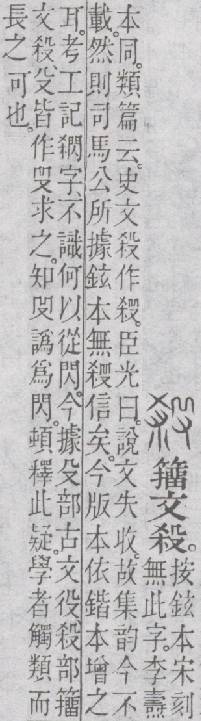 籒文殺。
按鉉本宋刻
無此字。李燾
本同。類篇云。史文殺作。臣光曰。說文失收。故集韵今不
載。然則司馬公所據鉉本無信矣。今版本依鍇本增之
耳。考工記字、不識何以從閃。今據殳部古文役、殺部籒
文殺殳皆作求之。知譌爲閃。頓釋此疑。學者觸類而
長之可也。